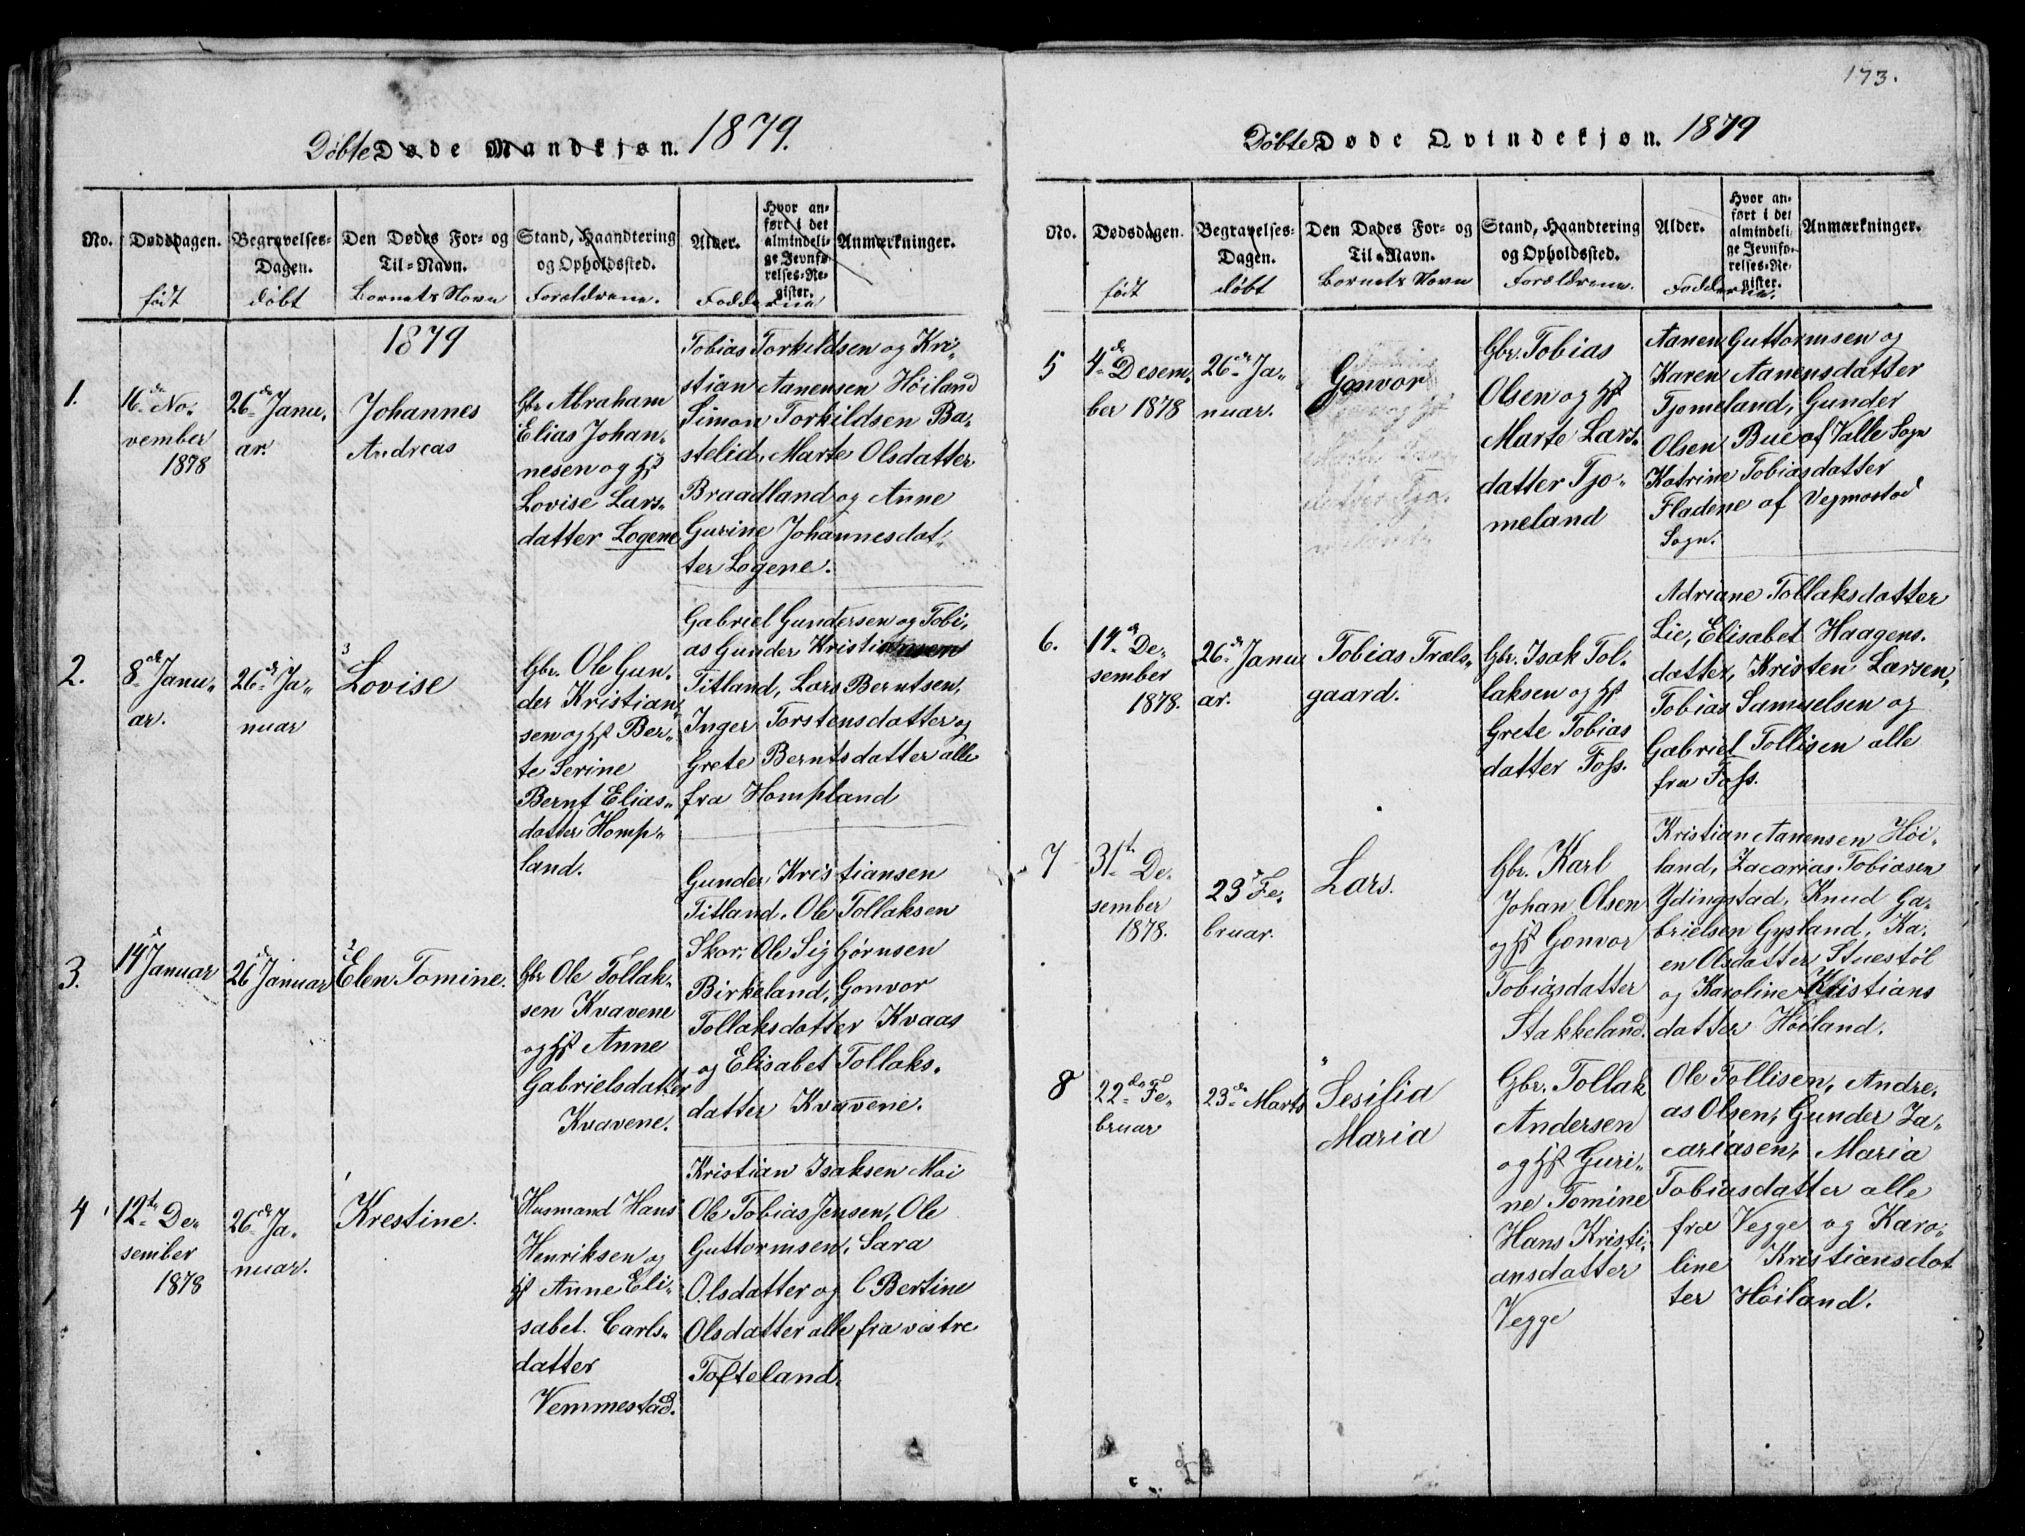 173.
Döbte Døde Mandkjøn. 1879.
No.
Dødsdagen.
født
Begravelses-
Dagen.
döbt
Den Dødes For- og
Til-Navn.
Bornets Navn
Stand, Haandtering
og Opholdssted.
Foreldrene.
Alder.
Hvor an-
ført i det
almindeli-
ge Jevnfø-
relses-Re-
gister.
Anmærkninger.
Fadderne
1879
1.
16de No-
vember
1878
26de Janu-
ar.
Johannes
Andreas
Gbr. Abraham
Elias Johan-
nesen og Hst
Lovise Lars-
datter Logene
Tobias Torkildsen og Kri-
stian Aanensen Höiland
Simon Torkildsen Ba-
stelid, Marte Olsdatter
Braadland og Anne
Gurine Johannesdat-
ter Logene.
2.
8de Janu-
ar.
26de Ja-
nuar
3
Lovise
Gbr. Ole Gun-
der Kristian-
sen og Hst Ber-
te Serine
Bernt Elias-
datter Homp-
land.
Gabriel Gundersen og Tobi-
as Gunder Kristiansen
Titland, Lars Berntsen,
Inger Torstensdatter og
Grete Berntsdatter alle
fra Hompland
3.
14d Januar
26d Januar
2
Elen Tomine.
Gbr Ole Tollak-
sen Kvavene
og Hst Anne
Gabrielsdatter
Kvavene.
Gunder Kristiansen
Titland. Ole Tollaksen
Skor, Ole Sigbjörnsen
Birkeland, Gonvor
Tollaksdatter Kvaas
og Elisabet Tollaks-
datter Kvavene.
4
12te De-
sember
1878
26de Ja-
nuar.
1
Krestine.
Husmand Hans
Henriksen og
Hst Anne Eli-
sabet Carls-
datter
Vemmestad.
Kristian Isaksen Moi
Ole Tobias Jensen, Ole
Guttormsen, Sara
Olsdatter og C Bertine
Olsdatter alle fra vestre
Tofteland.
Döbte Døde Qvindekjøn. 1879
No.
Dødsdagen.
født
Begravelses-
Dagen.
döbt
Den Dødes For- og
Til-Navn.
Bornets Navn
Stand, Haandtering
og Opholdssted.
Forældrene.
Alder.
Hvor an-
ført i det
almindeli-
ge Jevnfø-
relses-Re-
gister.
Anmærkninger.
Fadderne.
5
4de Desem-
ber 1878
26de Ja-
nuar.
Gonvor
Gbr. Tobias
Olsen og Hst
Marte Lars-
datter Tjo-
meland
Aanen Guttormsen og
Karen Aanensdatter
Tjomeland, Gunder
Olsen Bue af Valle Sogn
Katrine Tobiasdatter
Fladene af Vejmostad
Sogn.
6.
14de De-
sember
1878.
26de Janu
ar.
Tobias Træls-
gaard.
Gbr. Isak Tol-
laksen og Hst
Grete Tobias
datter Foss.
Adriane Tollaksdatter
Lie, Elisabet Haagens-
datter, Kristen Larsen,
Tobias Samuelsen og
Gabriel Tollisen alle
fra Foss.
7
31te De-
sember
1878.
23d Fe-
bruar.
Lars.
Gbr. Karl
Johan Olsen
og Hst Gonvor
Tobiasdatter
Stakkeland.
Kristian Aanensen Höi-
land, Zacarias Tobiasen
Ydingstad, Knud Ga-
brielsen Gysland, Ka-
en Olsdatter Stuestöl
og Karoline Kristians
datter Höiland.
8
22de Fe-
bruar
23de Marts
Sesilia
Maria
Gbr. Tollak
Andersen
og Hst Guri-
ne Tomine
Hans Kristi-
ansdatter
Vegge
Ole Tollisen, Andre-
as Olsen, Gunder Za-
cariasen, Maria
Tobiasdatter alle
fra Vegge og Karo-
line Kristiansdat
ter Höiland.